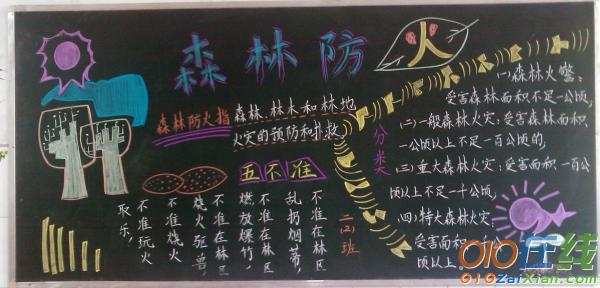 森林防火
森林防火指
森林、林木和林地
火灾的预防和扑救
五不准
不准在林区
乱扔烟蒂，
不准在林区
燃放爆竹，
不准在林区
烧火驱兽，
不准烧火
不准玩火
取乐！
二(2)班
分类
(一)森林火警：
受害森林面积不足一公顷，
(二)一般森林火灾：受害森林面积
一公顷以上不足一百公顷的，
(三)重大森林火灾：受害面积一百公
顷以上不足一千公顷，
(四)特大森林火灾
受害面积一千公
顷以上。
010在线
010ZaiXian.com